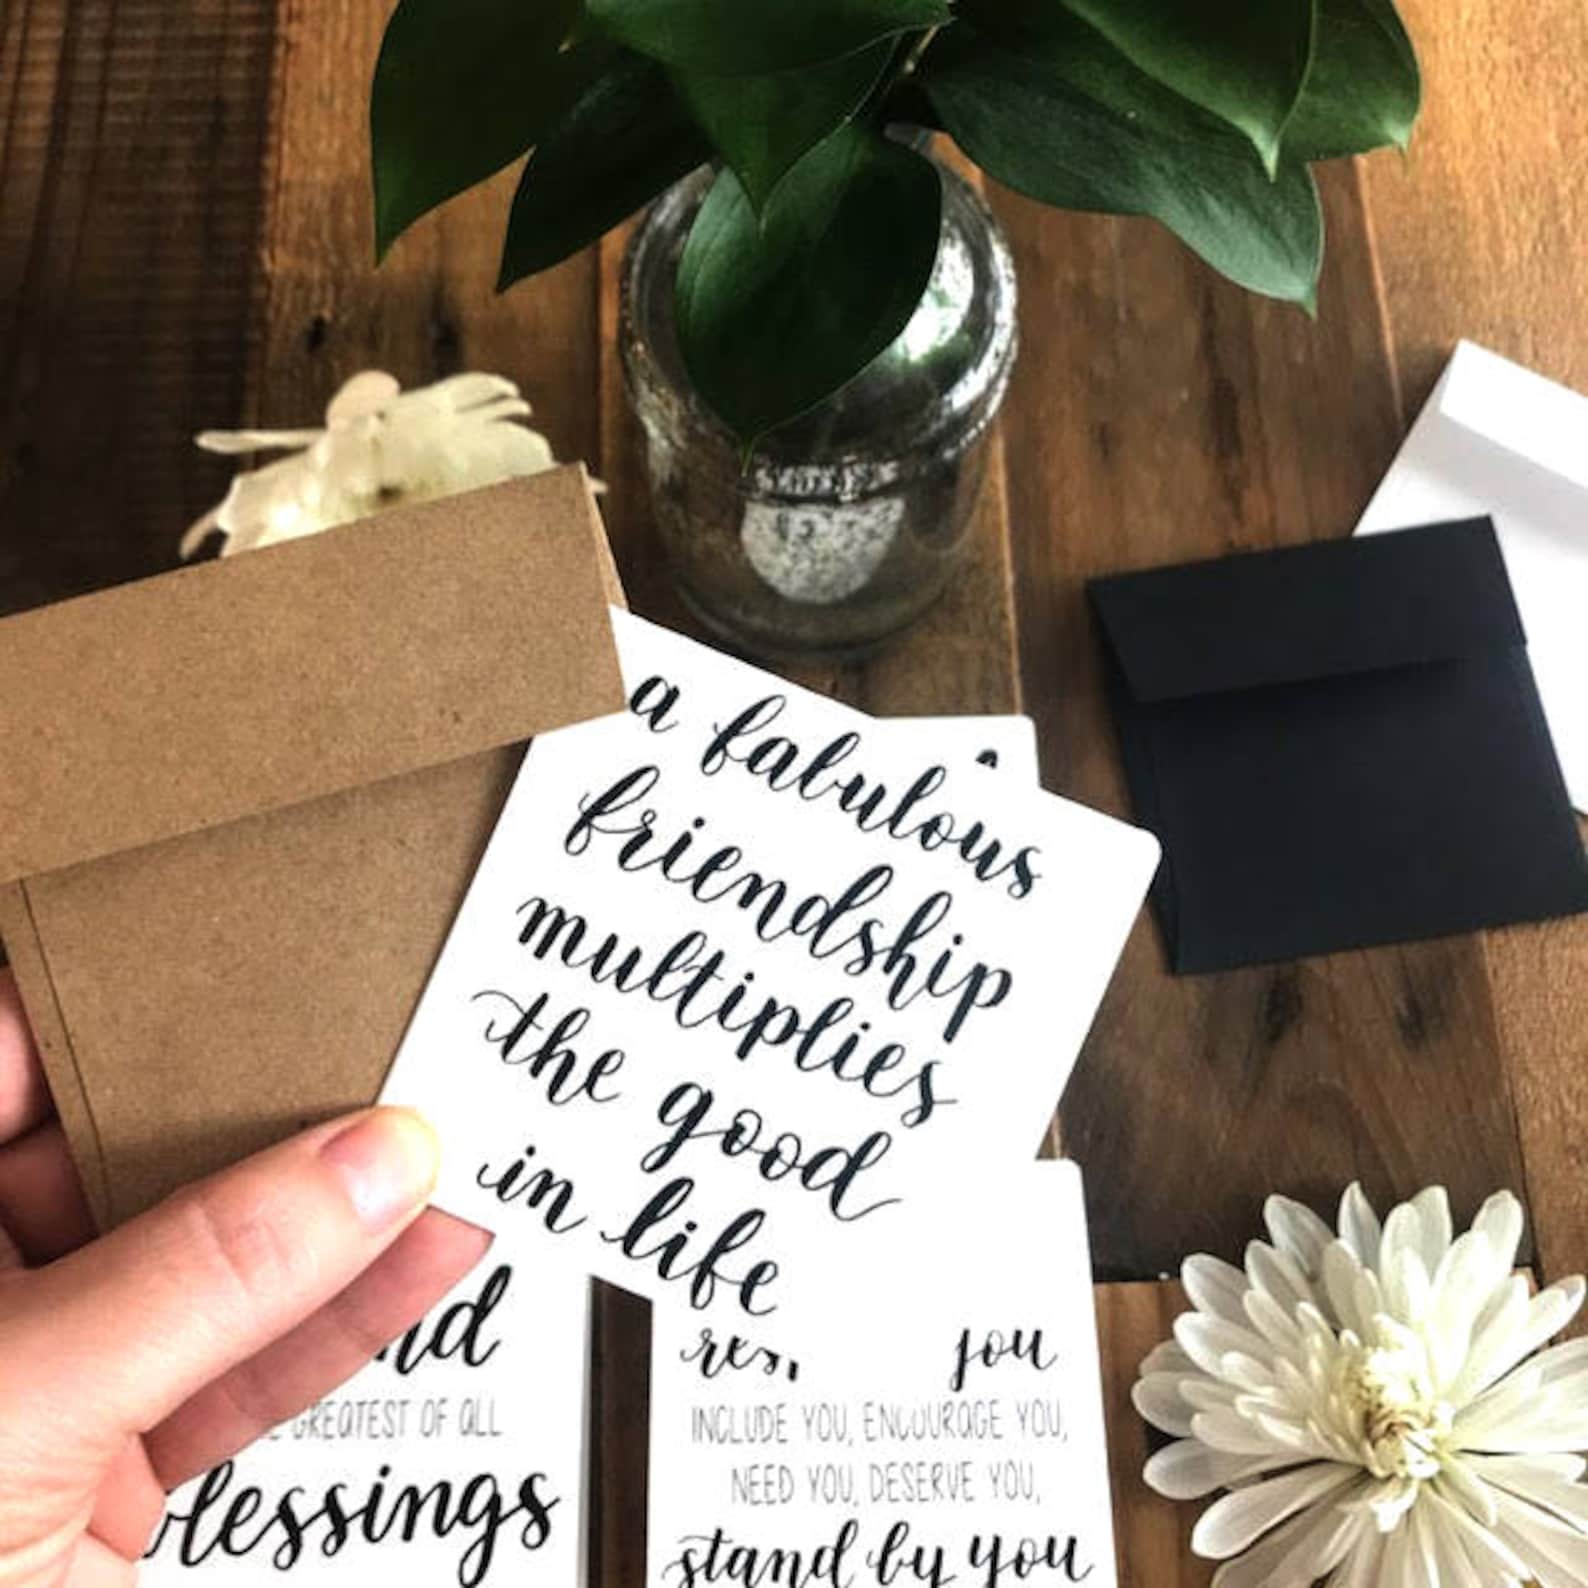 a fabulous
friendship
multiplies
the good
in life
GREATEST OF ALL
blessings
you
INCLUDE YOU, ENCOURAGE YOU,
NEED YOU, DESERVE YOU,
stand by you